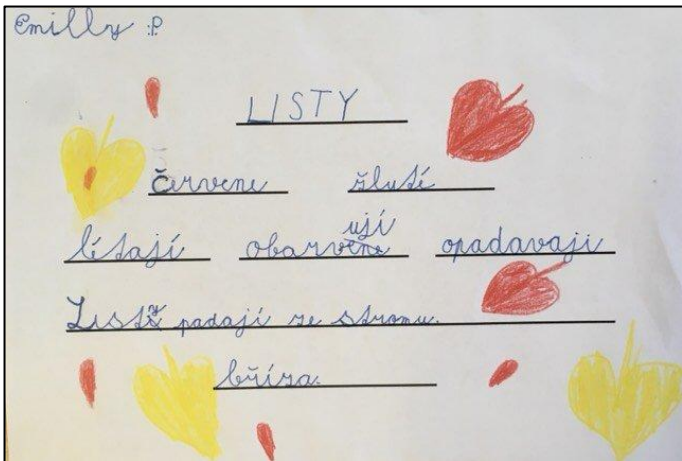 Emilly :P
LISTY
červene žluté
ují
lítají obarvene opadavaji
Listy padají ze stromu.
bříza.